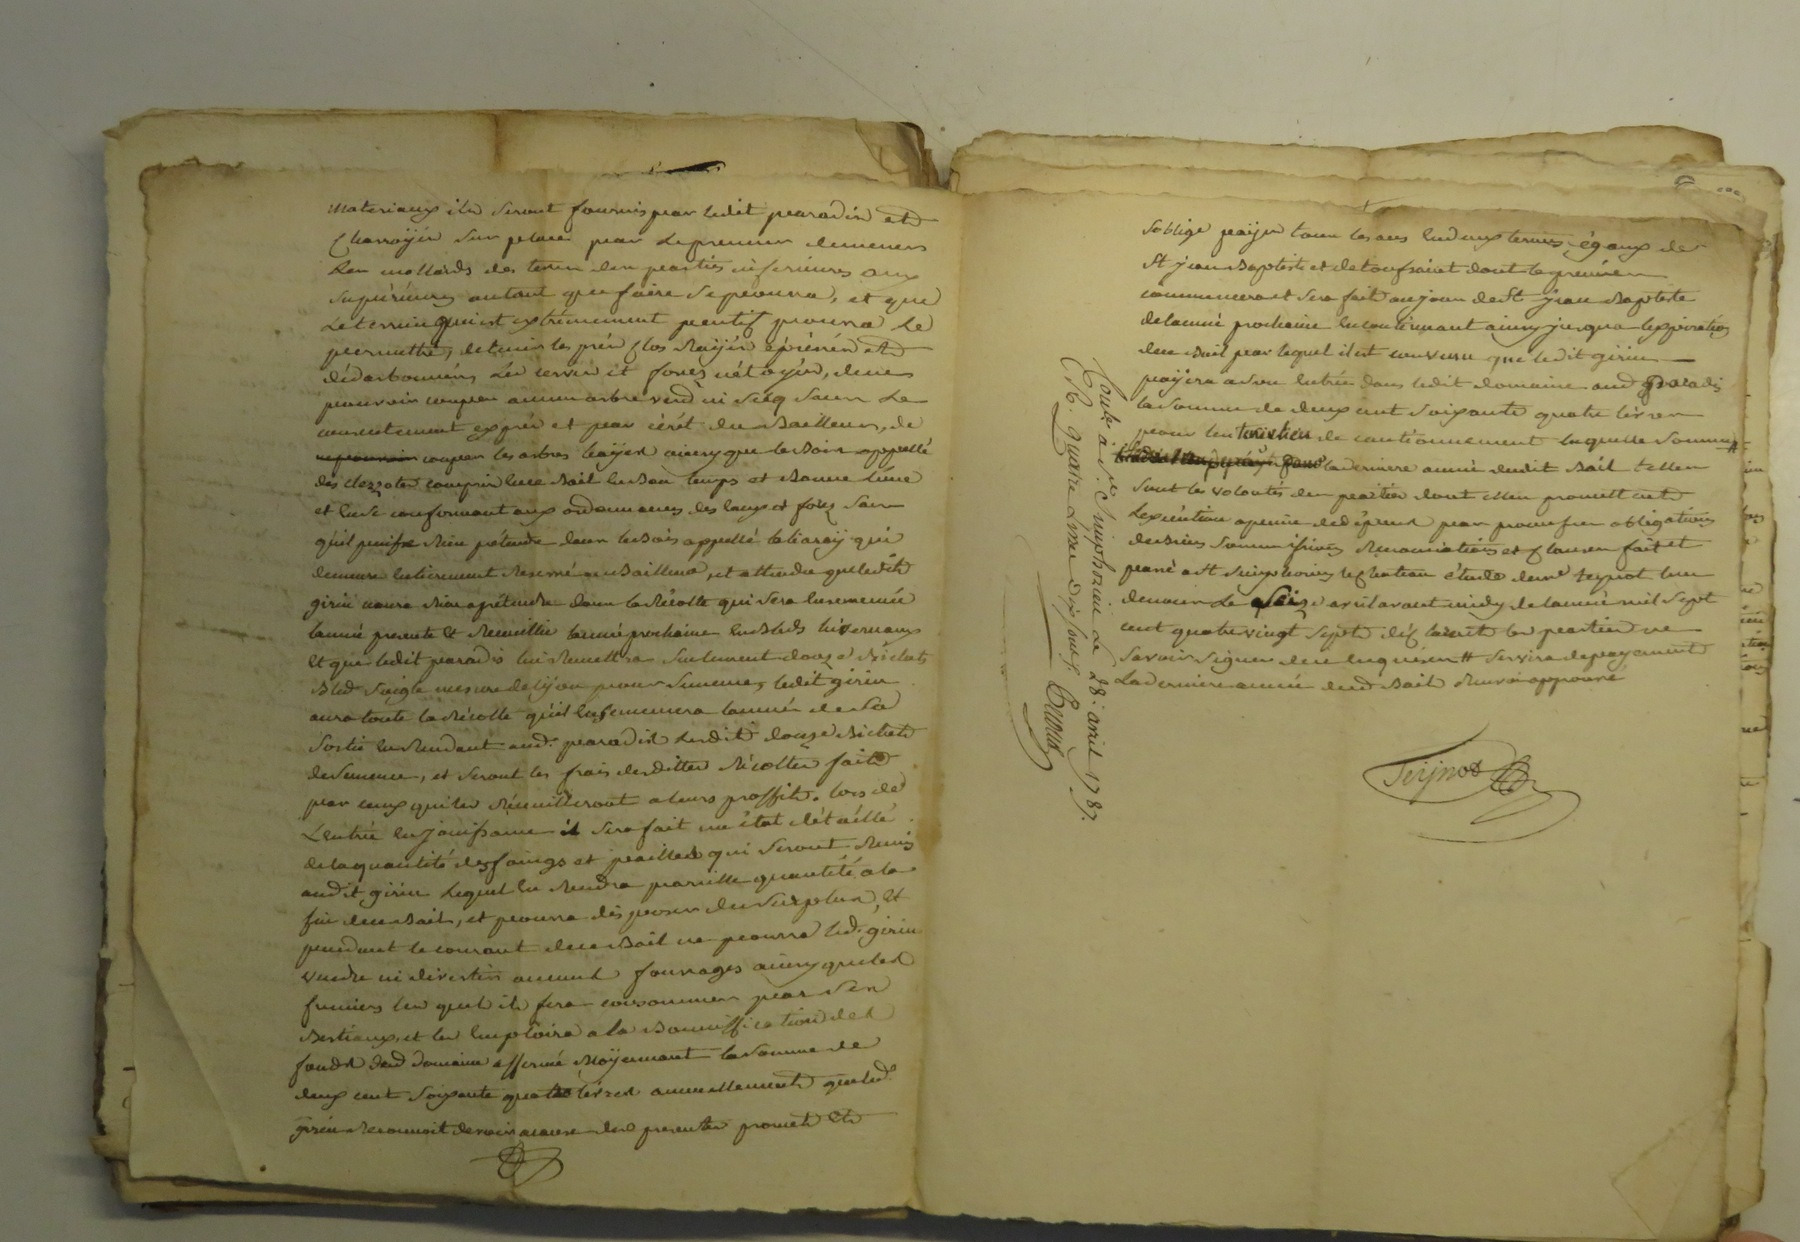 materiaux ils seront fournis par ledit paradis et
Charroyés sur place par le preneur de mener
les mollards des terres des parties inferieures aux
supérieures autant que faire se pourra, et que
le terrein qui est extrêmement pentif pourra le
permettre, de tenir les prés clos
les et fossés nétoyés, de ne
pouvoir couper aucun arbre verd ni secq sans le
consentement exprès et par écrit du Bailleur, de
couper les arbres ainsy que le Bois appellé
des compris en ce Bail en Bon temps et Bonne Lune
et en se conformant aux ordonnances des eaux et forêts sans
qu'il puisse Rien prétendre dans le Bois appellé qui
demeure entierement Reservé au Bailleur, et attendu que ledit
girin n'aura Rien a prétendre dans la Récolte qui sera ensemencée
l'année presente et Recueillie l'année prochaine en Bleds hivernaux
et que ledit paradis lui Remettra seulement douze Bichets
Bled Seigle mesure de Lyon pour semence, ledit girin
aura toute la Récolte qu'il ensemencera l'année de sa
sortie en Rendant aud. paradis lesdits douze Bichets
de semence, et seront les frais desdittes Récoltes faits
par ceux qui les Recueilleront a leurs proffits. lors de
L'entrée en jouissance il sera fait un état détaillé
de la quantité des foings et pailles qui seront Remis
audit girin lequel en Rendra pareille quantité a la
fin de ce Bail, et pourra disposer du surplus, et
pendant le courant de ce Bail ne pourra led. girin
vendre ni divertir aucuns fourrages ainsy que les
fumiers lesquels il fera consommer par ses
Bestiaux, et les emploira a la Bonniffication des
fonds dud domaine affermé Moÿennant la somme de
deux cent soixante quatre livres annuellement que led.
girin Reconnoit devoir a cause des presentes promet et
s'oblige païer tous les ans en deux termes égaux de
St jean Baptiste et de toussaint dont le premier
commencera et sera fait au jour de St jean Baptiste
de l'année prochaine en continuant ainsy jusqu'a l'expiration
de ce Bail par lequel il est convenu que ledit girin
payera a son entrée dans ledit domaine aud paradis
la somme de deux cent soixante quatre livres
pour lui tenir lieu de cautionnement laquelle somme #
la derniere année dudit Bail telles
sont les volontés des parties dont elles promettent
L'exécution a peine de dépens par pour ses obligations
de Biens soumissions Renonciations et Clauses fait et
passé a St Simphorien le Chateau étude de me teynot l'un
de nous Le Seize avril avant midy de l'année mil sept
cent quatre vingt sept déclarent les parties ne
savoir signer de ce enquises # servira de payement
La derniere année dud Bail Renvoi approuvé
Teÿnot
Conlé à St. Simphorien le 28: avril 1787.
R. quatre Livres dix sous